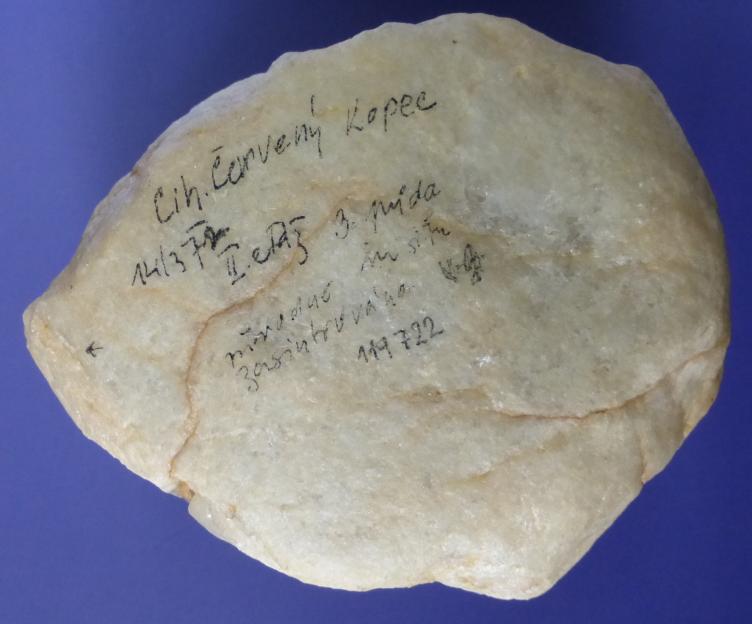 Cih. Červený Kopec
14/3 72 II etáž 3. půda
původně in situ
zasintrována
119722